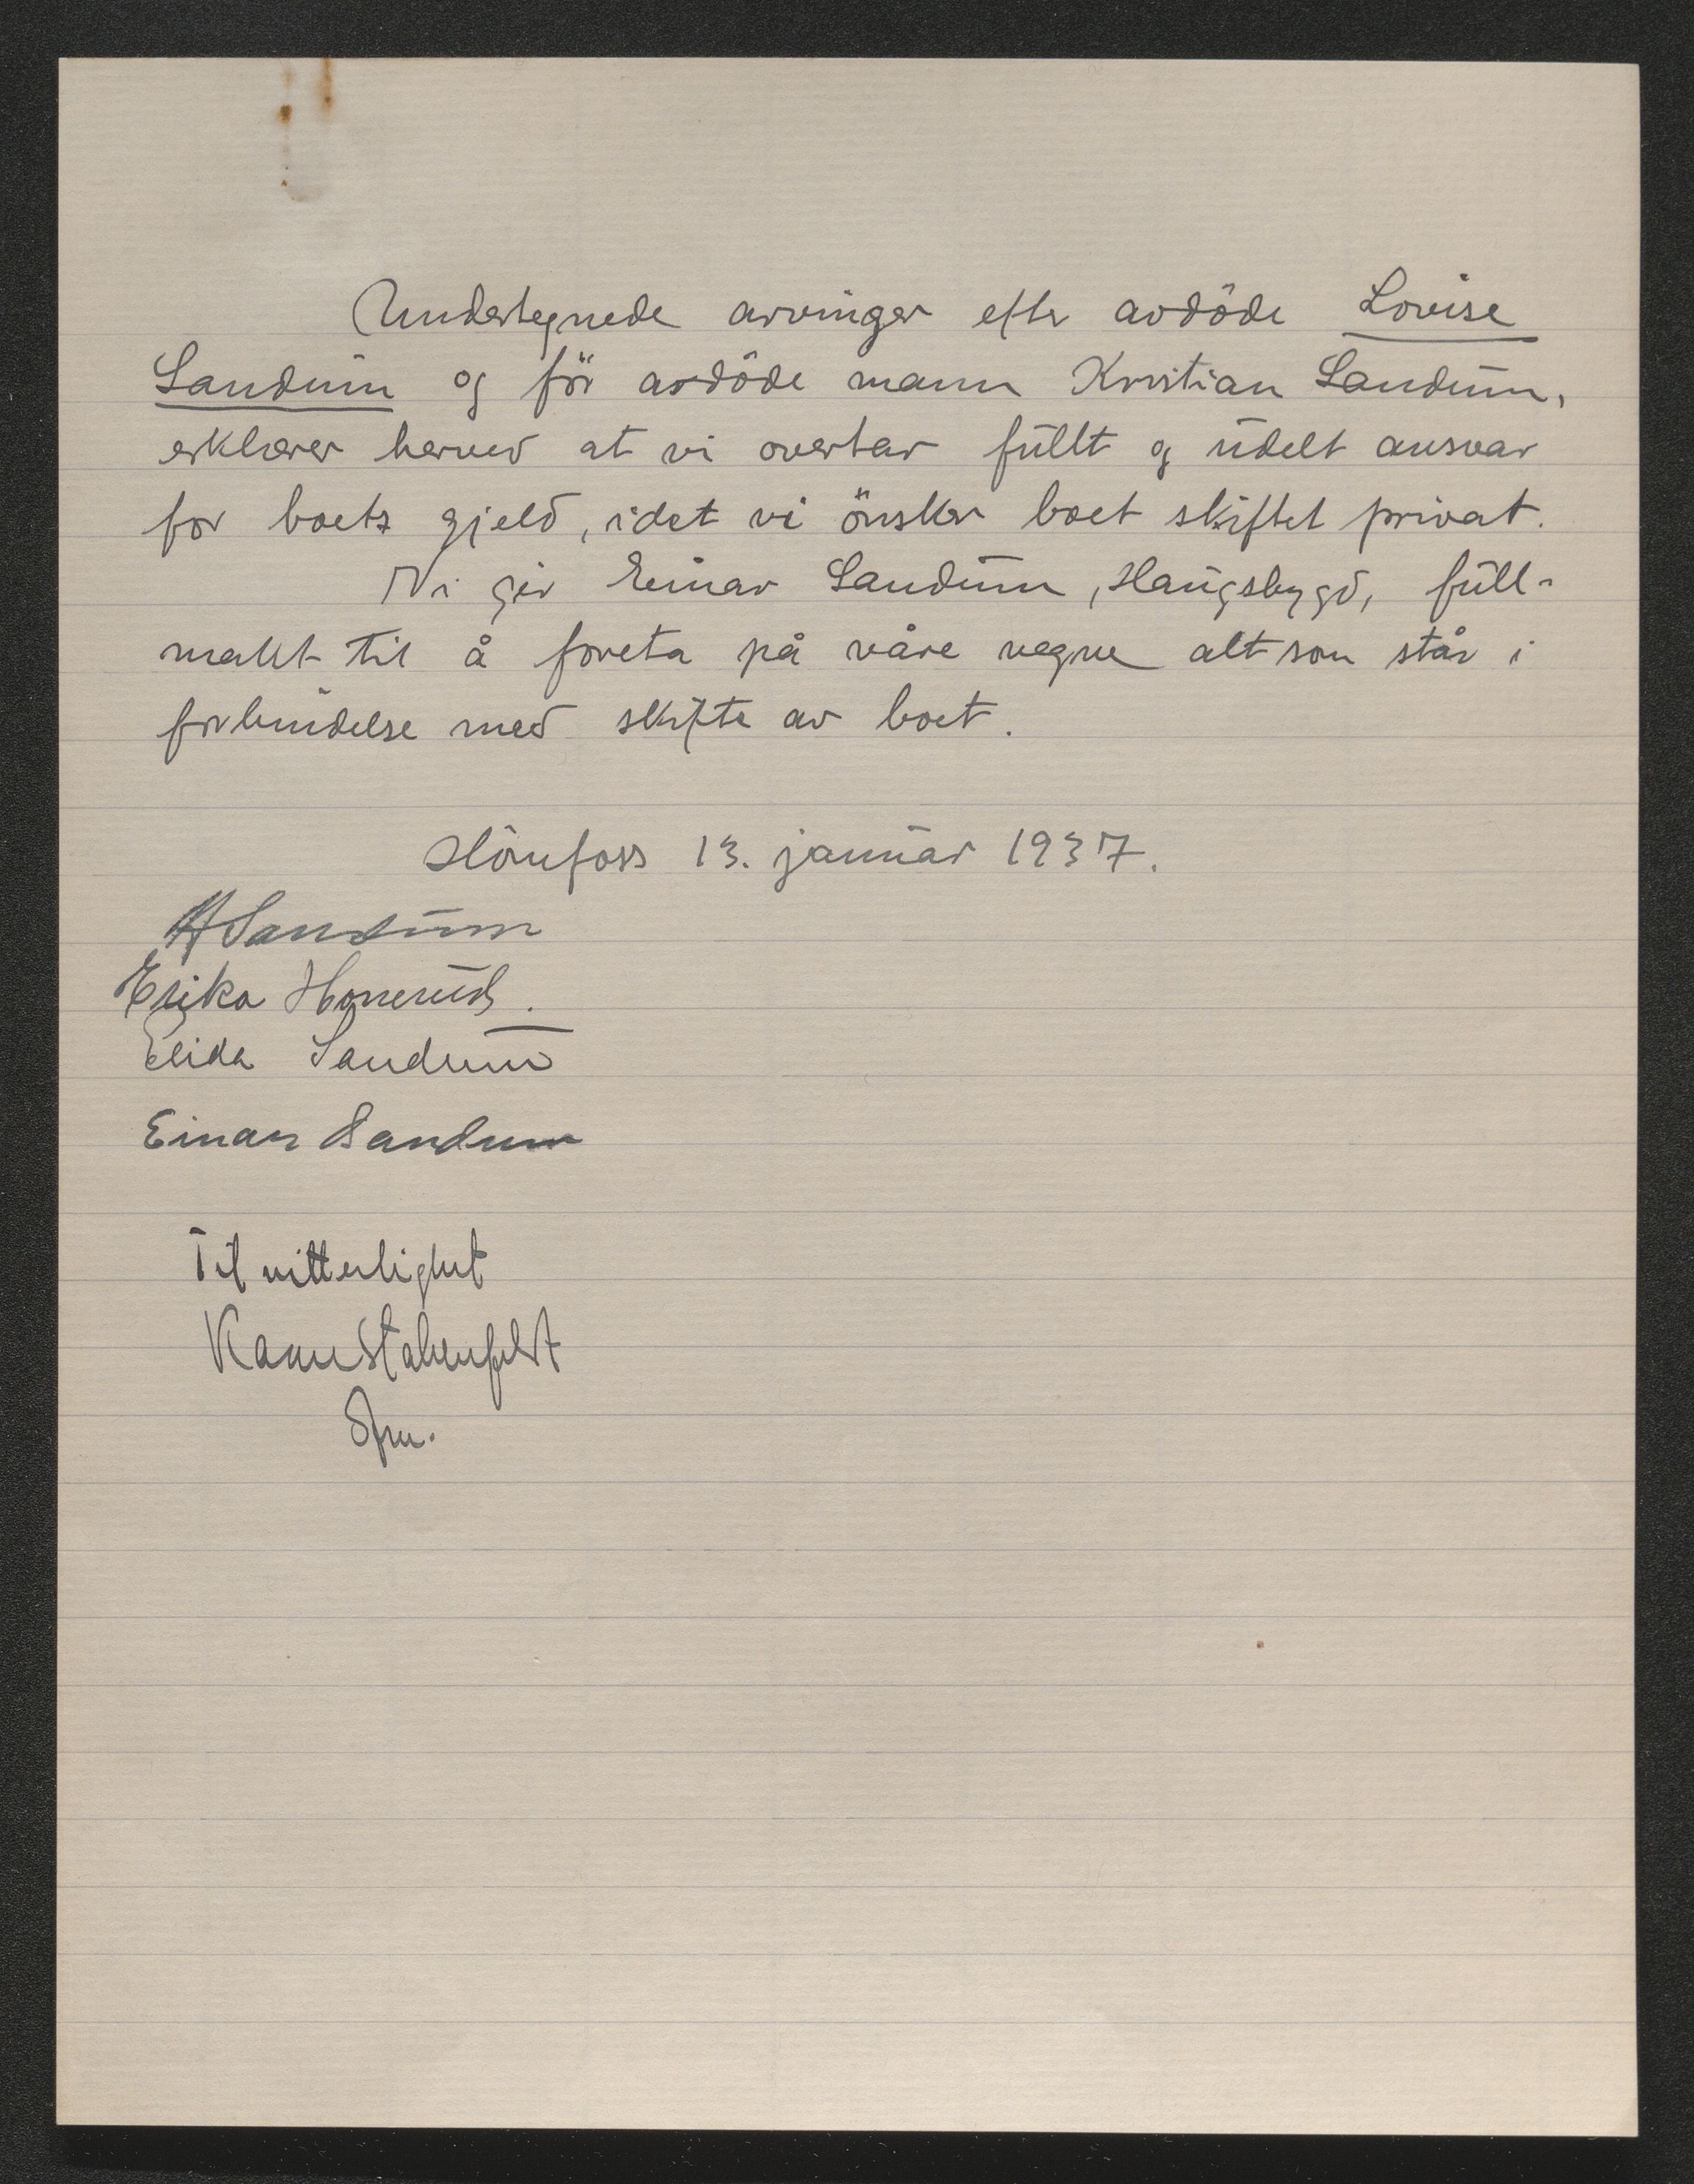 Undertegnede arvinger efter avdöde Lovise
Sandum og för avdöde mann Kristian Sandum,
erklærer herved at vi overtar fullt og udelt ansvar
for boets gjeld, idet vi önsker boet skiftet privat.
Vi gir Einar Sandum, Haugsbygd, full-
makt til å foreta på våre vegne alt som står i
forbindelse med skifte av boet.
Hönefoss 13. januar 1937.
H Sandum
Erika Honerud.
Elida Sandum
Einar Sandum
Til vitterlighet